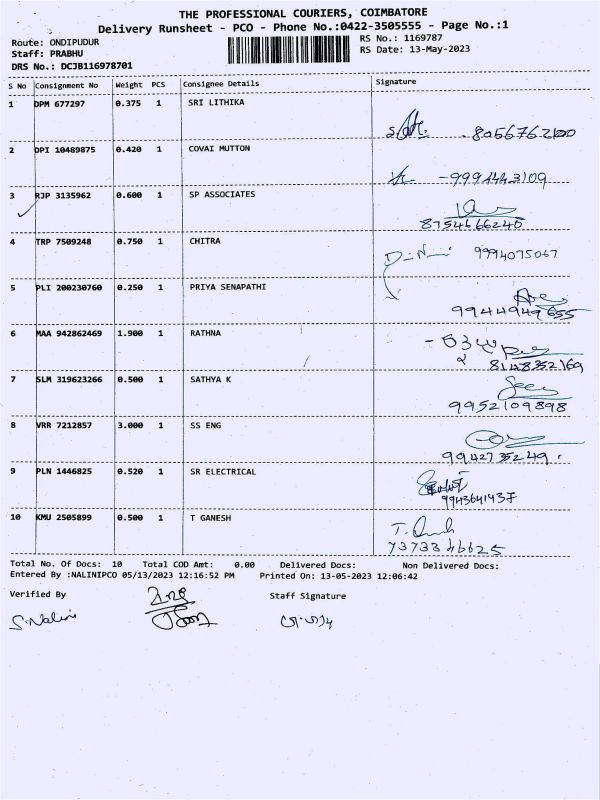 THE PROFESSIONAL COURIERS, COIMBATORE
Delivery Runsheet - PCO - Phone No.:0422-3505555 - Page No.:1
Route: ONDIPUDUR RS No.: 1169787
Staff: PRABHU RS Date: 13-May-2023
DRS No.: DCJB116978701
S No Consignment No Weight PCS Consignee Details Signature
1 DPM 677297 0.375 1 SRI LITHIKA
8056762100
2 DPI 10489875 0.420 1 COVAI MUTTON
-9994443109
3 RJP 3135962 0.600 1 SP ASSOCIATES
8754666240
4 TRP 7509248 0.750 1 CHITRA
9994075067
5 PLI 200230760 0.250 1 PRIYA SENAPATHI
9944949655
6 MAA 942862469 1.900 1 RATHNA
8148352169
7 SLM 319623266 0.500 1 SATHYA K
9952109898
8 VRR 7212857 3.000 1 SS ENG
9942735249.
9 PLN 1446825 0.520 1 SR ELECTRICAL
9943641437
10 KMU 2505899 0.500 1 T GANESH
7373346625
Total No. Of Docs: 10 Total COD Amt: 0.00 Delivered Docs: Non Delivered Docs:
Entered By :NALINIPCO 05/13/2023 12:16:52 PM Printed On: 13-05-2023 12:06:42
Verified By Staff Signature
S.Nalini